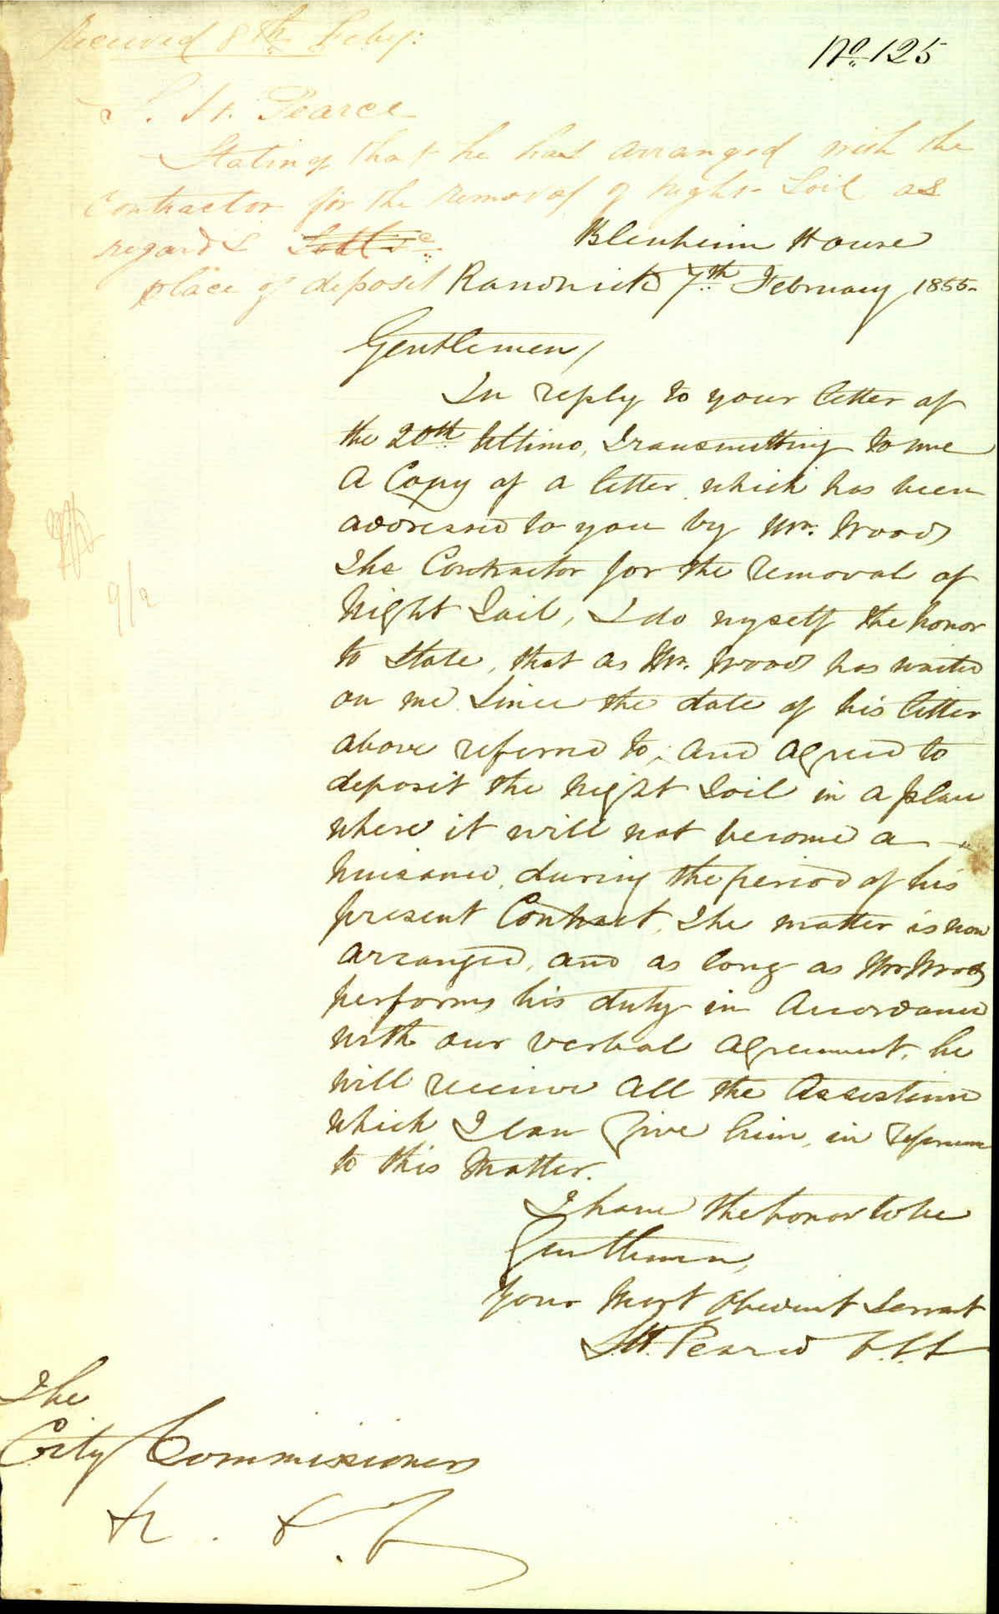 Received 8th Feby:
No. 125
S. H. Pearce
Stating that he has arranged with the
Contractor for the removal of night Soil as
regards
place of deposit
Blenheim House
Randwick 7th February 1855
Gentlemen,
In reply to your letter of
the 20th Ultimo, Transmitting to me
a Copy of a letter which has been
addressed to you by Mr. Wood
The Contractor for the removal of
Night Soil, I do myself the honor
to State, that as Mr. Wood has waited
on me Since the date of his letter
above referred to, and agreed to
deposit the Night Soil in a place
where it will not become a
Nuisance, during the period of his
present Contract, The matter is now
arranged, and as long as Mr Wood
performs his duty in Accordance
with our verbal agreement, he
will receive all the Assistance
which I can Give him, in reference
to this Matter.
I have the honor to be
Gentlemen,
Your Most Obedient Servant
S.H. Pearce
The
City Commissioners
9/2